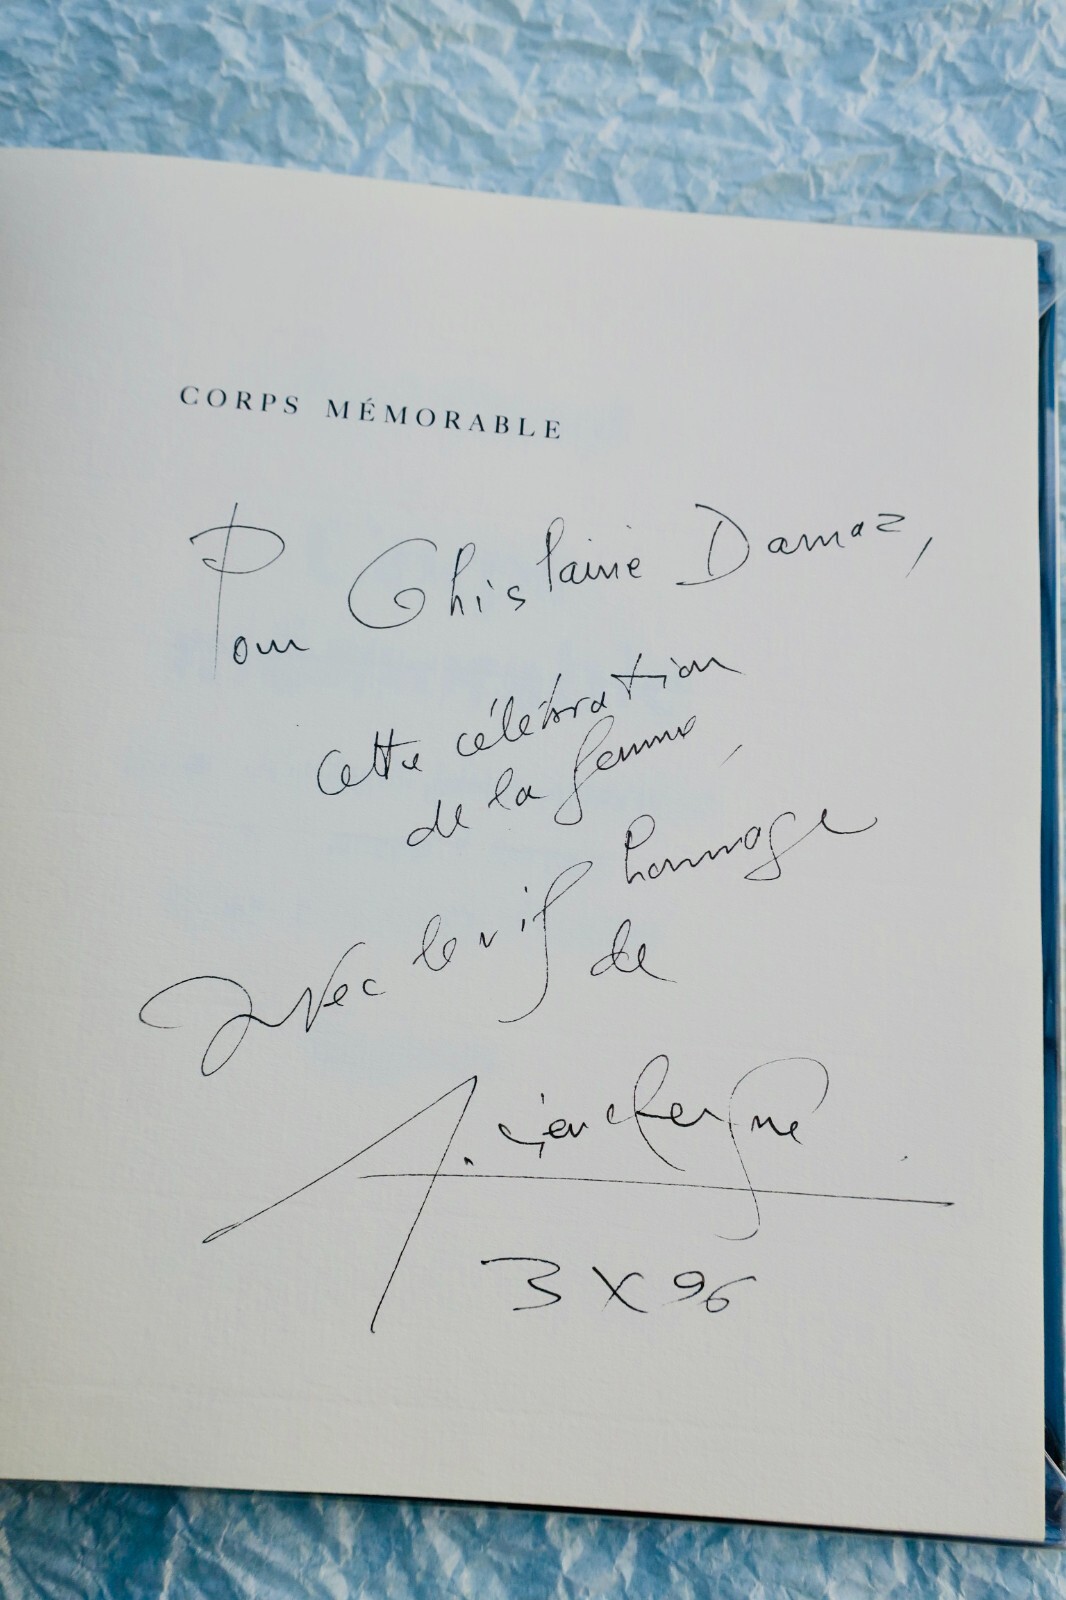 CORPS MÉMORABLE
Pour Ghislaine Damaz,
cette célébration
de la femme,
avec le vif hommage
de
L. Clergue
3 X 96